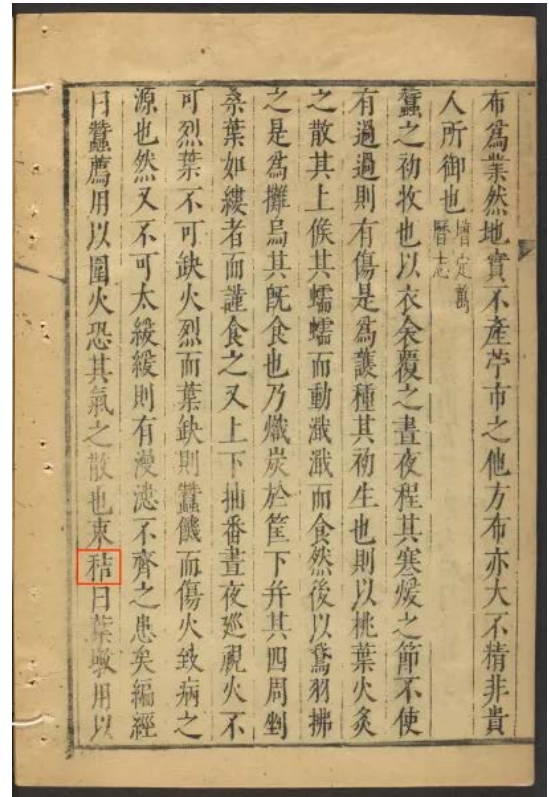 布為業然地實不產苧市之他方布亦大不精非貴
人所御也增定萬
曆志
蠶之初收也以衣衾覆之晝夜程其寒煖之節不使
有過過則有傷是為護種其初生也則以桃葉火炙
之散其上候其蠕蠕而動濈濈而食然後以鵞羽拂
之是為攤烏其既食也乃熾炭於筐下并其四周剉
桑葉如縷者而謹食之又上下抽番晝夜巡視火不
可烈葉不可缺火烈而葉缺則蠶饑而傷火致病之
源也然又不可太緩緩則有漫漶不齊之患矣編經
曰蠶薦用以圍火恐其氣之散也束秸曰葉墩用以